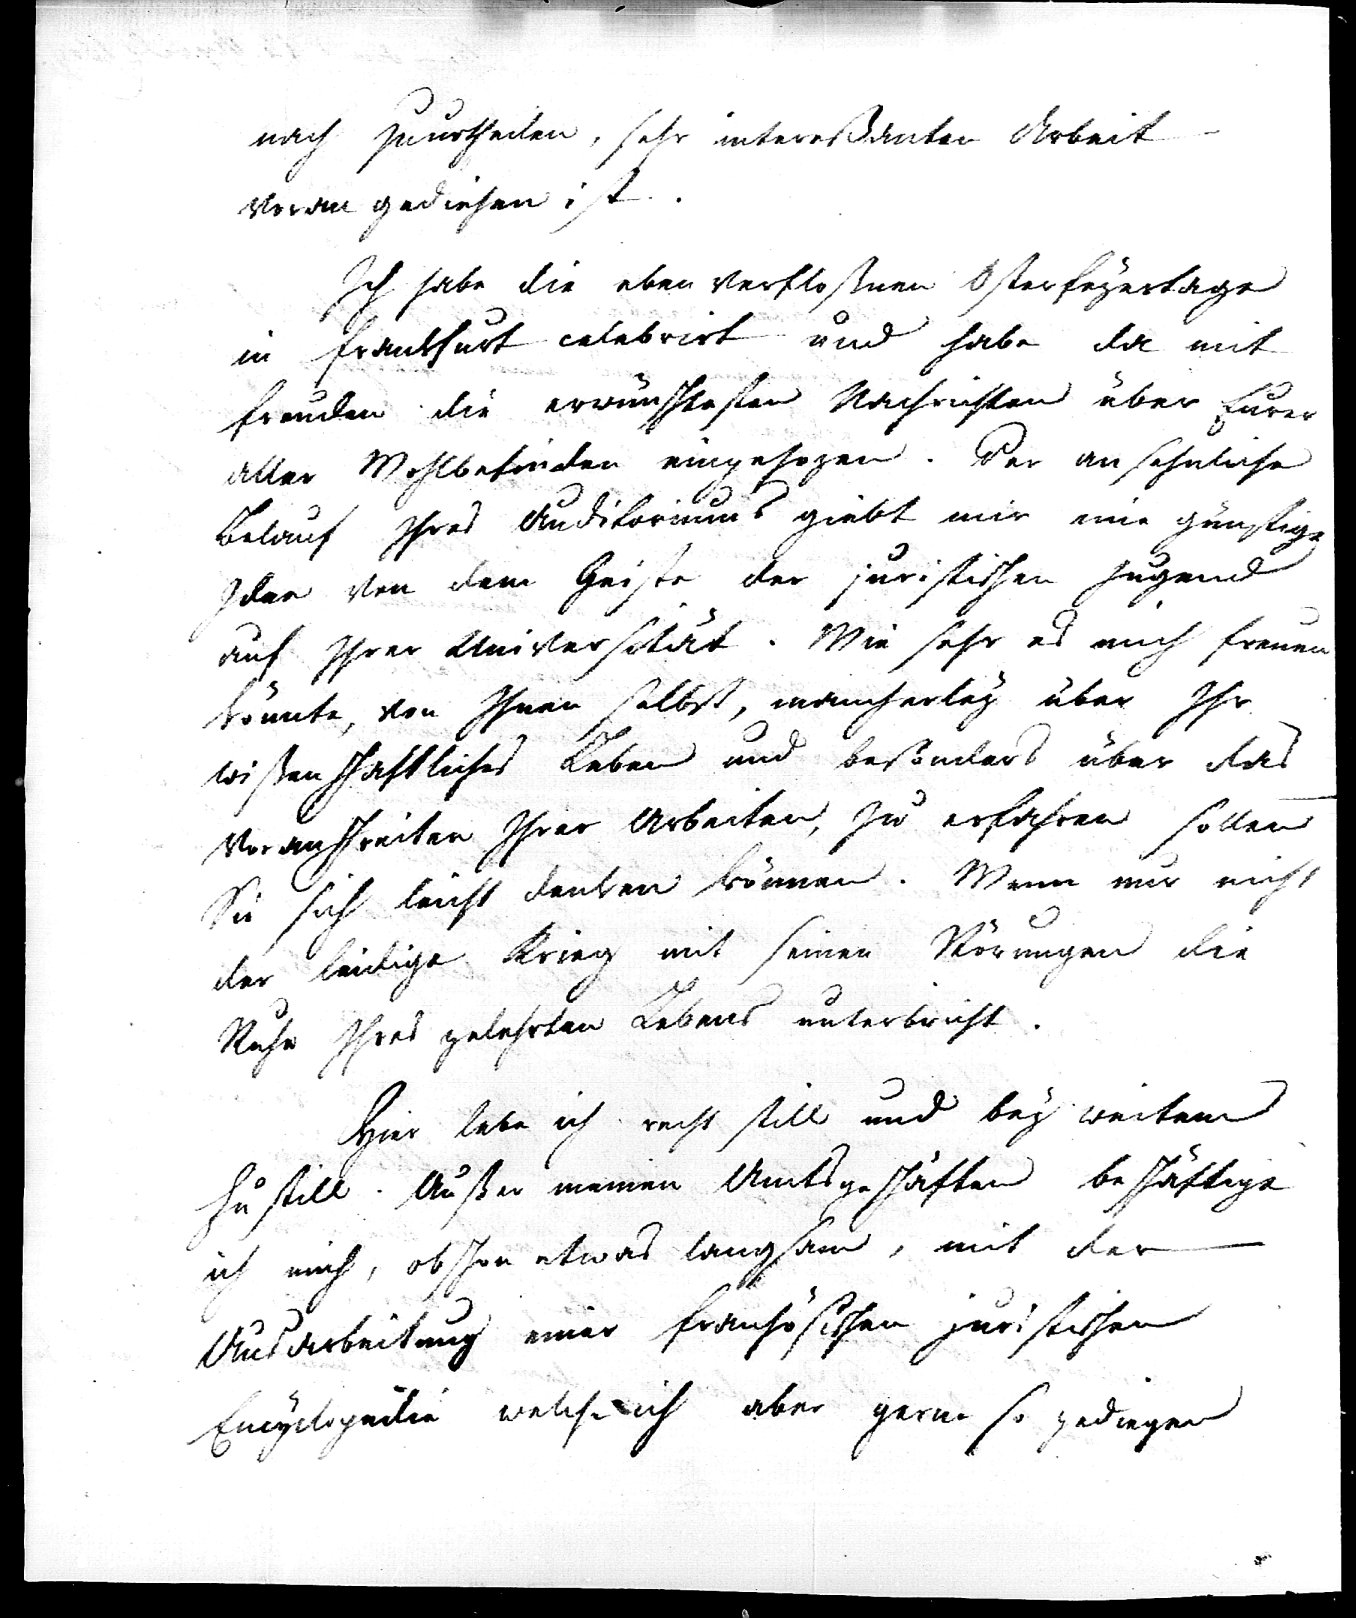 nach zu urtheilen, sehr intereßanten Arbeit
voran gediehen ist.
Ich habe die eben verfloßnen Osterfeyertage
in Frankfurt celebrirt und habe da mit
Freuden die erwünschtesten Nachrichten über Eurer
aller Wohlbefinden eingezogen. Der ansehnliche
Belauf Ihres Auditoriums giebt mir eine günstige
Idee von dem Geiste der juristischen Jugend
auf Ihrer Universität. Wie sehr es mich freuen
könnte, von Ihnen selbst, mancherley über Ihr
wißenschaftliches Leben und besonders über das
Voranschreiten Ihrer Arbeiten, zu erfahren sollen
Sie sich leicht denken können. Wenn nur nicht
der leidige Krieg mit seinen Störungen die
Ruhe Ihres gelehrten Lebens unterbricht.
Hier lebe ich recht still und bey weitem
zu still. Außer meinen Amtsgeschäften beschäftige
ich mich, obschon etwas langsam, mit der
Ausarbeitung einer französischen juristischen
Encyclopedie welche ich aber gerne so gediegen